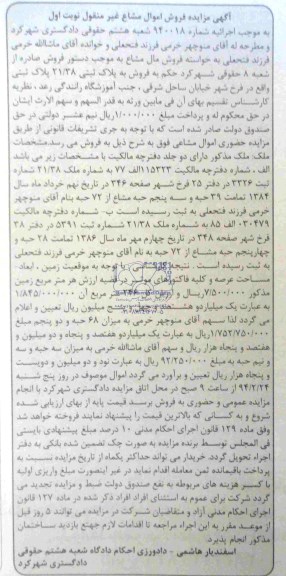 آگهی مزایده فروش اموال مشاع غیر منقول نوبت اول
به موجب اجرائیه شماره ۹۴۰۰۱۸ شعبه هشتم حقوقی دادگستری شهرکرد
و مطرحه له آقای منوچهر خرمی فرزند فتحعلی و خوانده آقای ماشااله خرمی
فرزند فتحعلی به خواسته فروش مال مشاع به موجب دستور فروش صادره از
شعبه ۸ حقوقی شهرکرد حکم به فروش به پلاک ثبتی ۲۱/۳۸ پلاک ثبتی
واقع در فرخ شهر خیابان ساحل شرقی ، جنب آموزشگاه رانندگی رعد ، نظریه
کارشناس تقسیم بهای آن فی مابین ورثه به قدر السهم و سهم الارث ایشان
در حق محکوم له و پرداخت مبلغ ۱/۰۰۰/۰۰۰ریال نیم عشر دولتی در حق
صندوق دولت صادر شده است که با توجه به جری تشریفات قانونی از طریق
مزایده حضوری اموال مشاعی فوق به شرح ذیل به فروش می رسد.مشخصات
ملک: ملک مذکور دارای دو جلد دفترچه مالکیت با مشخصات زیر می باشد
الف ، شماره دفترچه مالکیت ۱۵۳۲۳الف ۷۷ به شماره ملک ۲۱/۳۸ شماره
ثبت ۳۳۲۶ در دفتر ۲۵ فرخ شهر صفحه ۳۴۶ در تاریخ نهم خرداد ماه سال
۱۳۸۴ تمامت ۳۹ حبه و سه پنجم حبه مشاع از ۷۲ حبه بنام آقای منوچهر
خرمی فرزند فتحعلی به ثبت رسیده است ب- شماره دفترچه مالکیت
۰۳۰۴۷۹ الف ۸۵ به شماره ملک ۲۱/۳۸ شماره ثبت ۵۳۹۱ در دفتر ۳۸
فرخ شهر صفحه ۳۴۸ در تاریخ چهارم مهر ماه سال ۱۳۸۶ تمامت ۲۸ حبه و
چهارپنجم حبه مشاع از ۷۲ حبه به نام آقای منوچهر خرمی فرزند فتحعلی
به ثبت رسیده است . نتیجه با توجه به موقعیت زمین ، ابعاد
مساحت عرصه و کلیه فاکتورهای موثر در قضیه ارزش هر متر مربع زمین
مذکور ۷/۵۰۰/۰۰۰ریال و مربع آن ۱/۸۴۵/۰۰۰/۰۰۰
به عبارت یک میلیاردو هشتصد و چهل و پنج میلیون ریال تعیین و اعلام
می گردد لذا سهم آقای منوچهر خرمی به میزان ۶۸ حبه و دو پنجم مبلغ
۱/۷۵۲/۷۵۰/۰۰۰ریال به عبارت یک میلیاردو هفتصد و پنجاه و دو میلیون و
هفتصد و پنجاه هزار ریال و سهم آقای ماشااله خرمی به میزان سه حبه و سه
و نیم حبه به مبلغ ۹۲/۲۵۰/۰۰۰ ریال به عبارت نود و دو میلیون و دویست
و پنجاه هزار ریال تعیین و برآورد می گردد اموال موصوف در روز پنج شنبه
۹۴/۲/۲۴ از ساعت ۹ صبح در محل اتاق مزایده دادگستری شهرکرد با انجام
مزایده عمومی و حضوری به فروش برسد قیمت پایه از بهای ارزیابی شده
شروع و به کسانی که بالاترین قیمت را پیشنهاد نمایند فروخته خواهد شد
وفق ماده ۱۲۹ قانون اجرای احکام مدنی ۱۰ درصد مبلغ پیشنهادی بایستی
فی المجلس توسط برنده مزایده به صورت چک تضمین شده بانکی به دفتر
اجراء تحویل گردد خریدار می تواند حداکثر یکماه از تاریخ مزایده نسبت به
پرداخت باقیمانده ثمن معامله اقدام نماید در غیر اینصورت مبلغ واریزی اولیه
با کسر هزینه های مربوطه به نفع صندوق دولت ضبط و مزایده تجدید می
گردد شرکت برای عموم به استثنای افراد افراد ذکر شده در ماده ۱۲۷ قانون
اجرای احکام مدنی آزاد و متقاضیان شرکت در مزایده می توانند ۵ روز قبل
از موعد مقرر به این اجراء مراجعه تا اقدامات لازم جهت بازدید ساختمان
مذکور انجام پذیرد.
اسفندیار هاشمی - دادورزی احکام دادگاه شعبه هشتم حقوقی
دادگستری شهرکرد